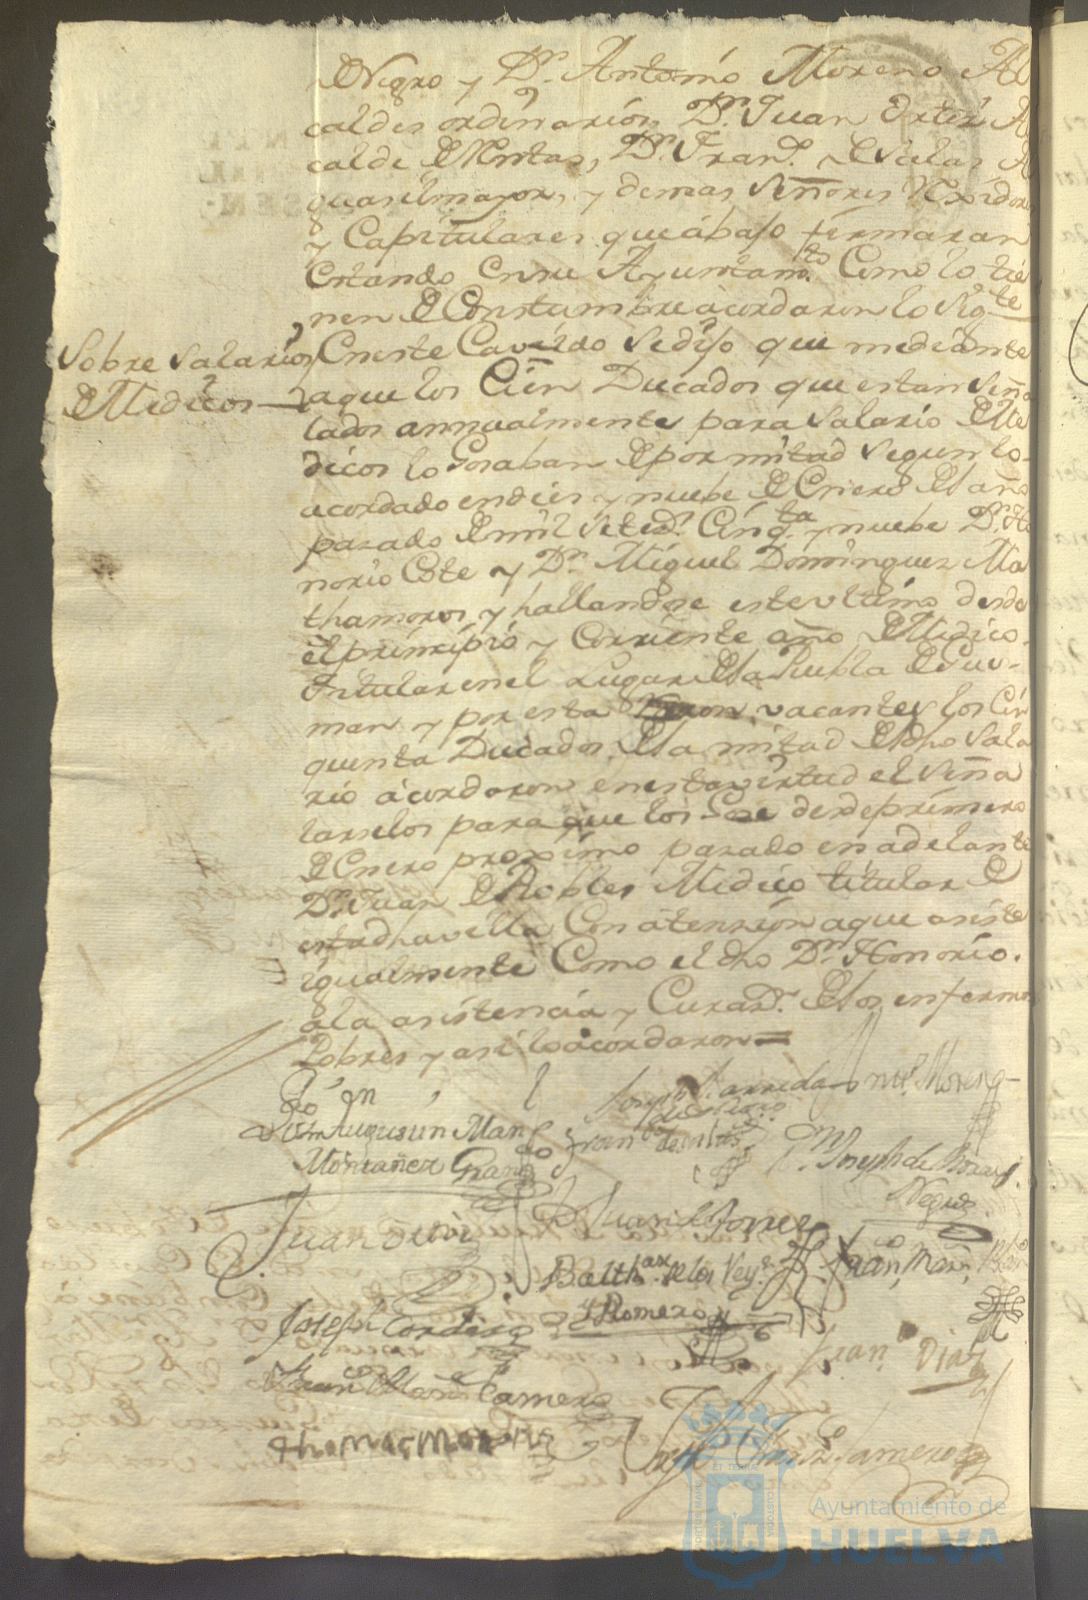 de Negro y Dn. Antonio Moreno Al
caldes ordinarios, Dn. Juan Ortiz Al
calde de Rentas, Dn. Fran.co de
guasilmayor, y demas Señores Rexidores
y Capitulares que abajo firmaran
Estando en su Ayuntam.to Como lo tie
nen de Constumbre acordaron lo Sig.te
Sobre Salarios
de Medicos
En este Cavildo Se dijo que mediante
a que los Cien Ducados que estan Seña
lados annualmente para Salario de Me
dicos lo Gosaban de por mitad Segun lo
acordado en dies y nuebe de Enero del año
pasado de mil Setecs. Cinq.ta y nuebe Dn. Ho
norio Cote y Dn. Miguel Dominguez Ma
thamoros, y hallandose este ultimo desde
el principio y Corriente año de Medico
titular en el Lugar de la Puebla de Gus-
man y por esta vacantes los Cin
quenta Ducados de la mitad del dho Sala
rio acordaron en esta virtud el Seña
larselos para que los Gose desde primero
de Enero proximo pasado en adelante
Dn. Juan de Robles Medico titular de
esta dha villa Con atension a que asiste
igualmente Como el dho Dn. Honorio
a la asistencia y Curas.n de los enfermos
Pobres y asi lo acordaron=
Joseph Barreda Ant.o Moreno
Agustin Man.l
Montañez Fran.co
Dn. Joseph de
Negro
Juan
Juan de Torres
Balth.ar de los Rey.s
y Romero
Fran.co Marn.
Joseph Cordero
Fran.co Diaz
Fran.co Mar.n Gamero
thomas moreno
Joseph Gamero
Ayuntamiento de
HUELVA